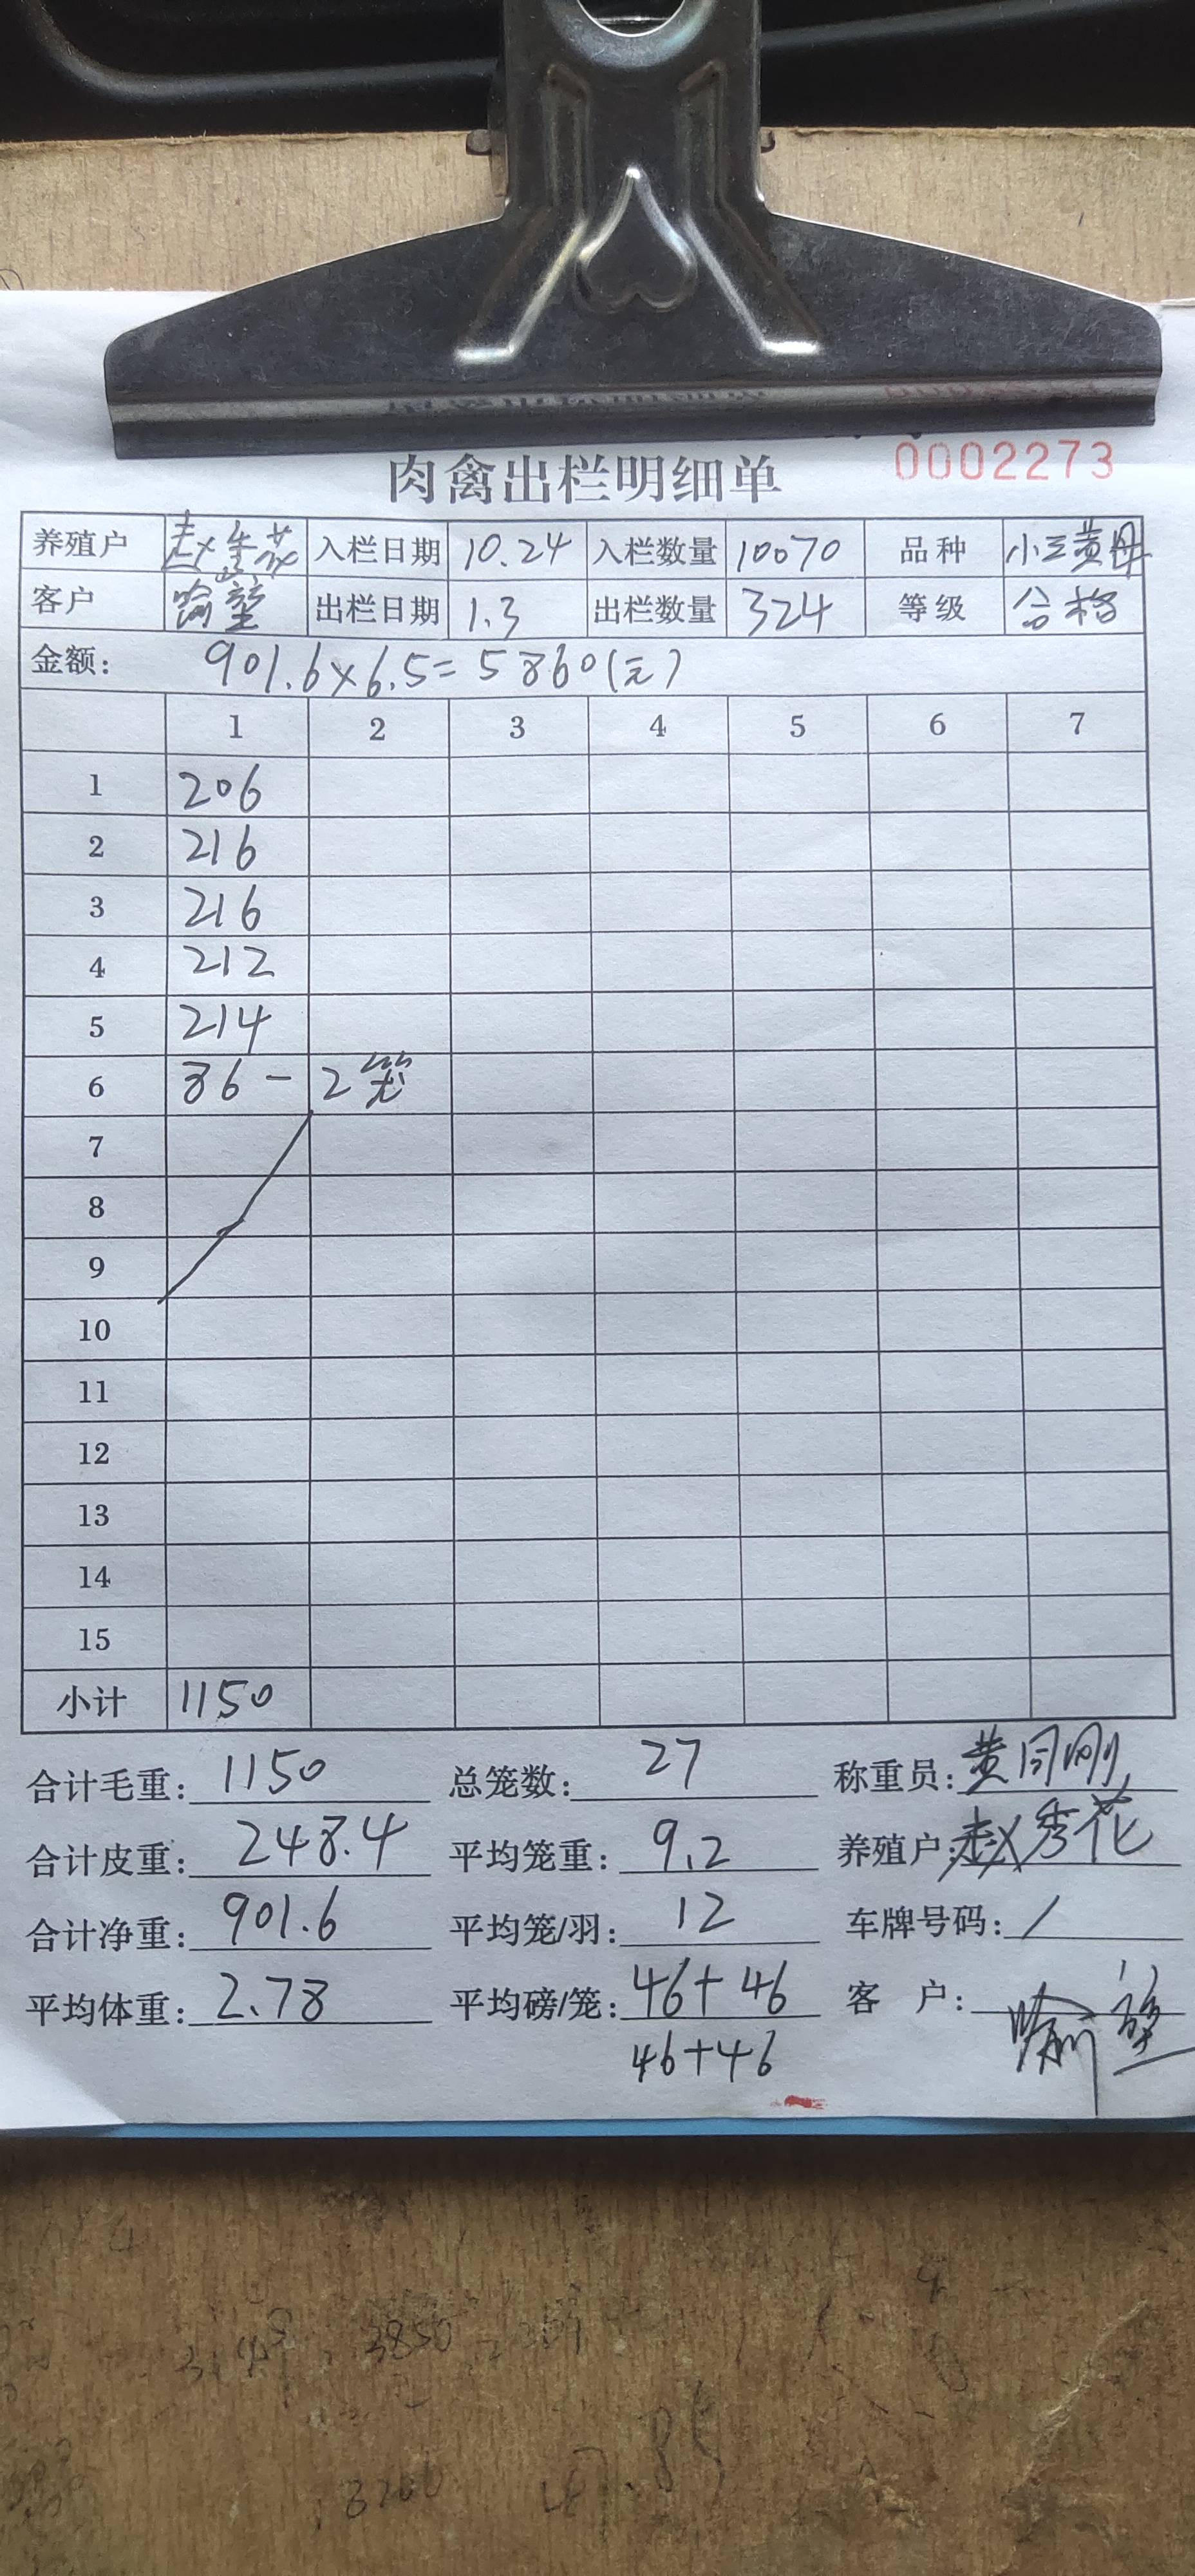 0002273
肉禽出栏明细单
养殖户 赵秀花 入栏日期 10.24 入栏数量 10070 品种 小三黄母
客户 喻 出栏日期 1.3 出栏数量 324 等级 合格
金额: 901.6×6.5=5860(元)
1 2 3 4 5 6 7
1 206
2 216
3 216
4 212
5 214
6 86 - 2笼
7
8
9
10
11
12
13
14
15
小计 1150
合计毛重: 1150 总笼数: 27 称重员: 黄同刚
合计皮重: 248.4 平均笼重: 9.2 养殖户: 赵秀花
合计净重: 901.6 平均笼/羽: 12 车牌号码: /
平均体重: 2.78 平均磅/笼: 46+46 客 户: 喻
46+46